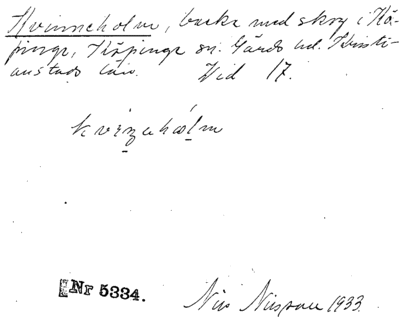 Kvinneholm, backe med skog i Kö-
pinge, Köpinge sn. Gärds hd. Kristi-
anstads län. Wid 17.
kvinaholm
Nr 5334.
Nils Nilsson 1933.